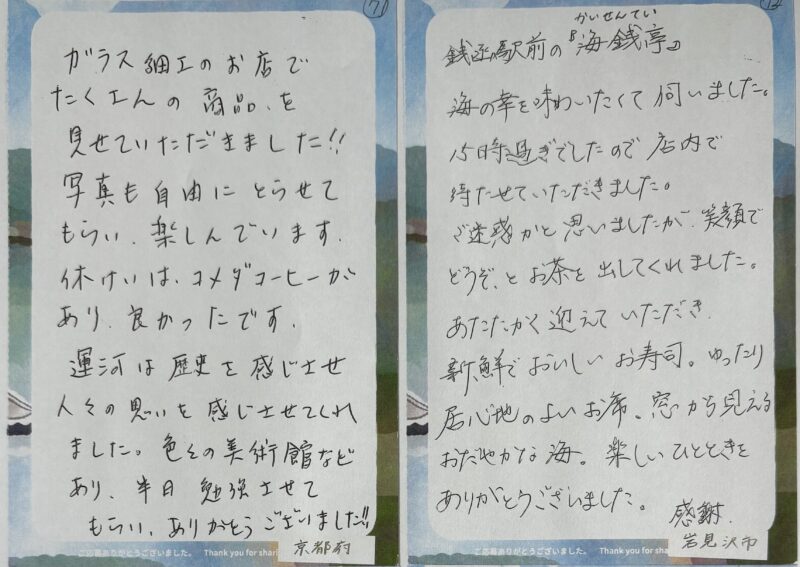 71
ガラス細工のお店で
たくさんの商品を
見せていただきました!!
写真も自由にとらせて
もらい、楽しんでいます。
休けいは、コメダコーヒーが
あり、良かったです。
運河は歴史を感じさせ
人々の思いを感じさせてくれ
ました。色々の美術館など
あり、半日勉強させて
もらい、ありがとうございました!!
ご応募ありがとうございました。 Thank you for shari
京都府
かいせんてい
銭函駅前の『海銭亭』
海の幸を味わいたくて伺いました。
15時過ぎでしたので店内で
待たせていただきました。
ご迷惑かと思いましたが、笑顔で
どうぞ、とお茶を出してくれました。
あたたかく迎えていただき、
新鮮でおいしいお寿司。ゆったり
居心地のよいお席。窓から見える
おだやかな海。楽しいひとときを
ありがとうございました。
感謝.
ご応募ありがとうございました。 Thank you for shar
岩見沢市